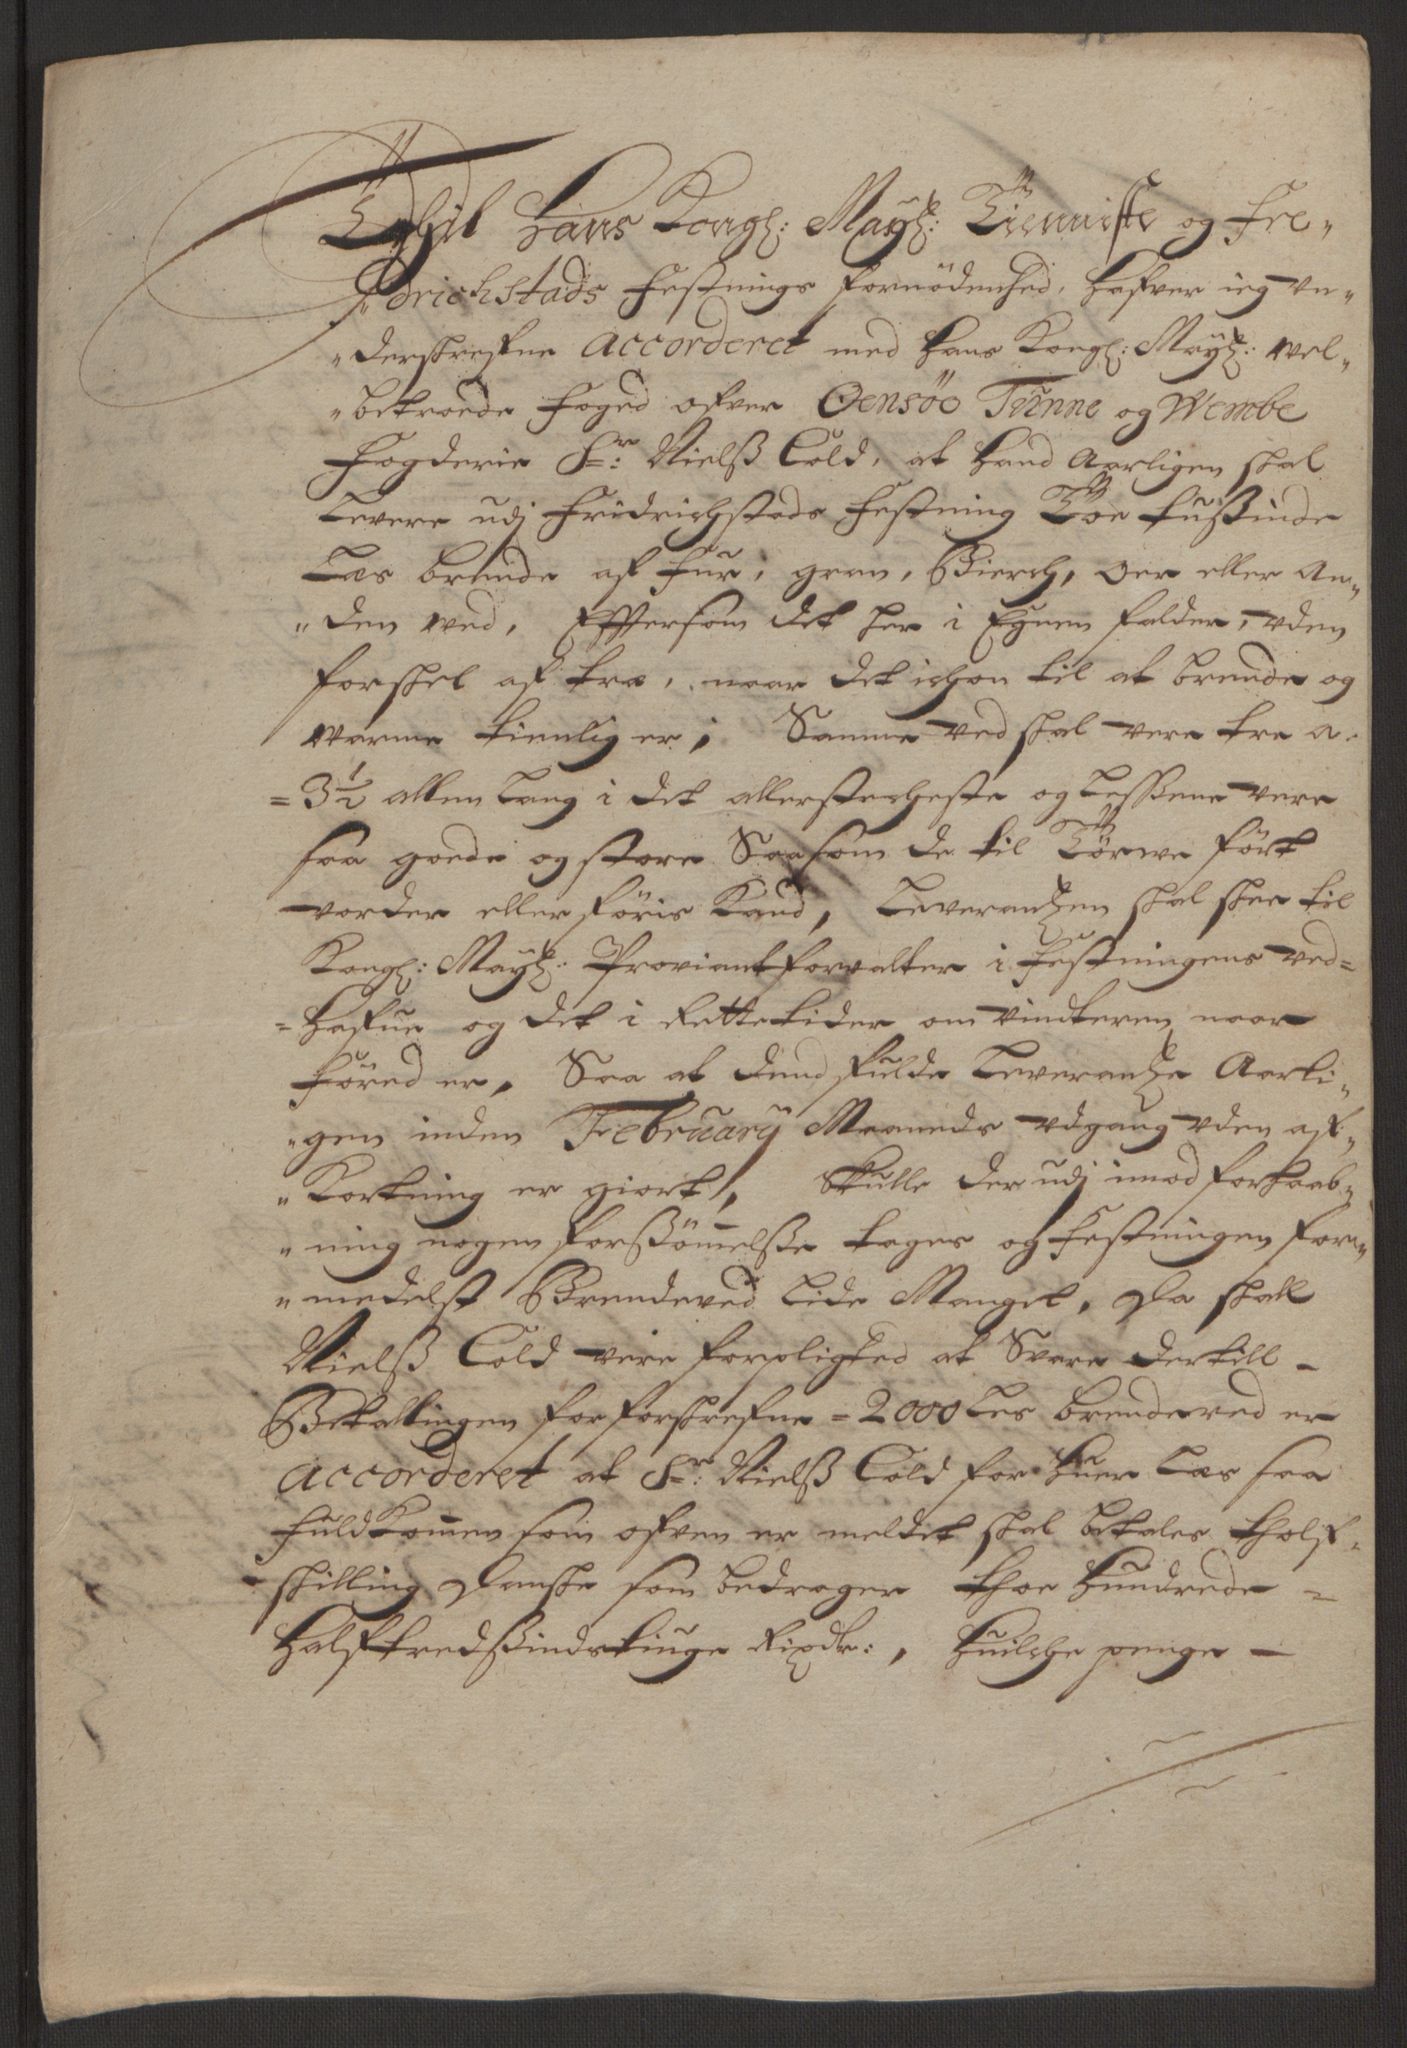 Till Hans Kongl: Mayt: Tienniste og Fre„
„drichstads Festnings fornödenhed, hafver ieg un„
„derskrefne Accorderet med Hans Kongl: Mayt: wel„
„betroede Foged ofver Oensöe Tunne og Wembe
Fogderie Sr: Nielß Cold, at hand Aarligen skal
Levere udj Fridrichstads Festning Toe tußinde
Læs brende af Fur, gran, Bierch, Oer eller An„
„den wed, Effersom det her i Egnen falder, uden
forskel af træ, naar det ichon til at brende og
warme tienlig er, Samme ved skal vere tre a
= 3½ allen lang i det allersterkeste og Leßene vere
saa goede og store Saasom de til Törwe fört
vorder eller föris kand, Leverantzen skal skee til
Kongl: Mayt: Proviantforvalter i Festningens ved=
=Hafue og det i Rette tider om vinteren naar
Föred er, Saa at dend fulde Leverantze Aarli„
„gen inden February Maaneds udgang uden af„
„Kortning er giort, Skulle der udj imod forhaab„
„ning nogen forßömmelße tages og Festningen for„
„medelst Brendeved Lide Mangel, Da skall
Nielß Cold vere forpligted at Svare dertill –
Betallingen for forskrefne = 2000 Les brendeved er
Accorderet at Sr: Nielß Cold for huer Læs saa
fuldkommen som ofven er meldet skal betales tholf„
skilling Danske som bedrager thoe hundrede –
halftredßindstiuge Rixdr:, huilche penge –